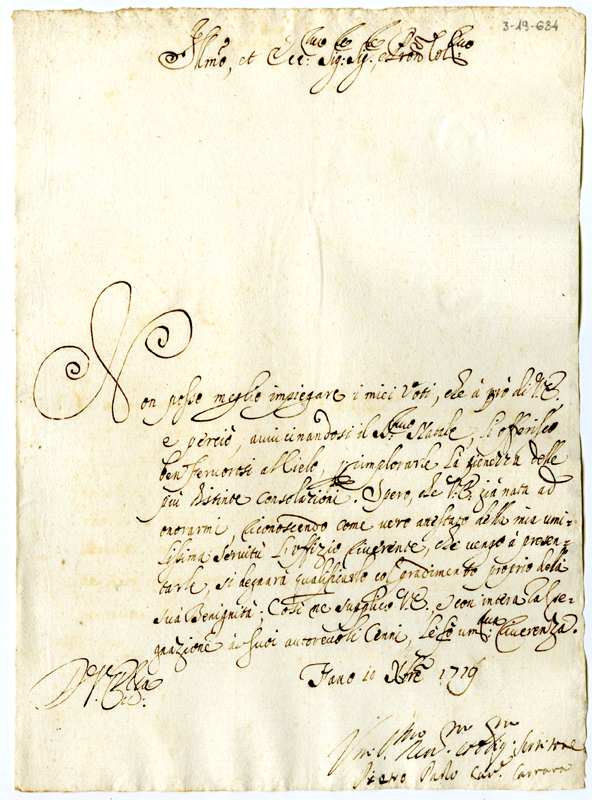 3-19-684
Illmo, et Ecc:mo Sig:re Sig:re, e Pron Col:mo
Non posso meglio impiegare i miei Voti, che à prò di V.E.
e perciò, avvicinandosi il S:mo Natale, li offerisco
ben fervorosi al Cielo, per implorarle la pienezza delle
più distinte consolazioni. Spero, che V.E. già nata ad
onorarmi riconoscendo come vero attestato della mia umi=
lissima servitù l'uffizio riverente, che vengo à presen=
tarle, si degnarà qualificarlo col gradimento proprio della
sua Benignità; Così ne supplico V.E., e con intera rasse=
gnazione à suoi autorevoli Cenni, le fò um:ma riverenza.
Fano 10 Xbre 1719
D. V. Ecc:za
Um:mo Dev:mo et obblig:mo Servitore
Pietro Paolo Cav. Carrara